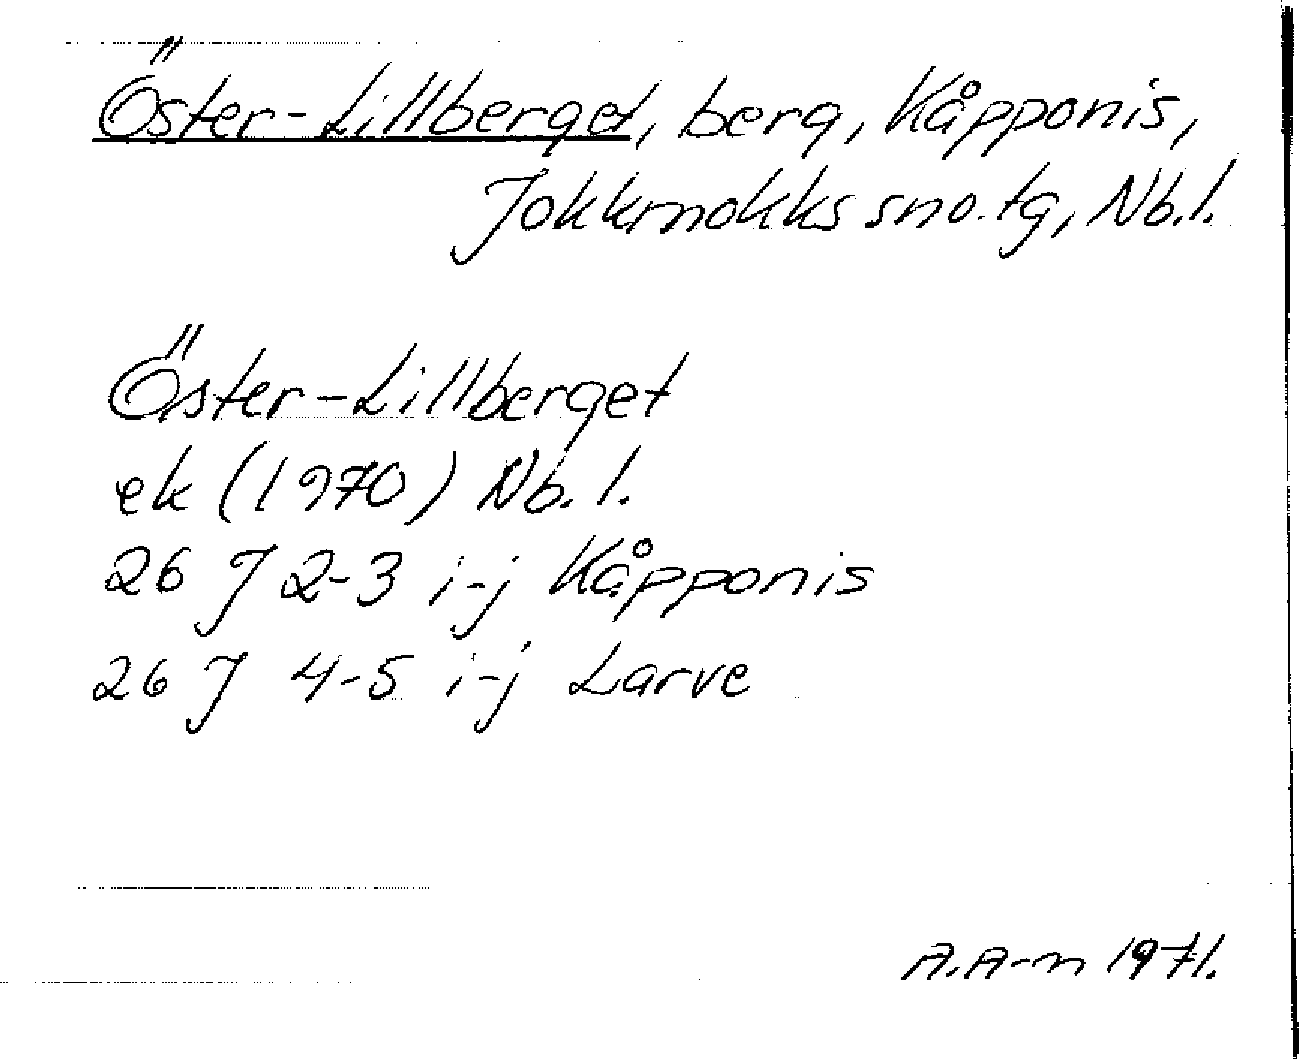 Öster-Lillberget, berg, Kåpponis,
Jokkmokks sno.tg, Nb.l.
Öster-Lillberget
ek (1970) Nb.l.
26 J 2-3 i-j Kåpponis
26 J 4-5 i-j Larve
A.A-n 1971.